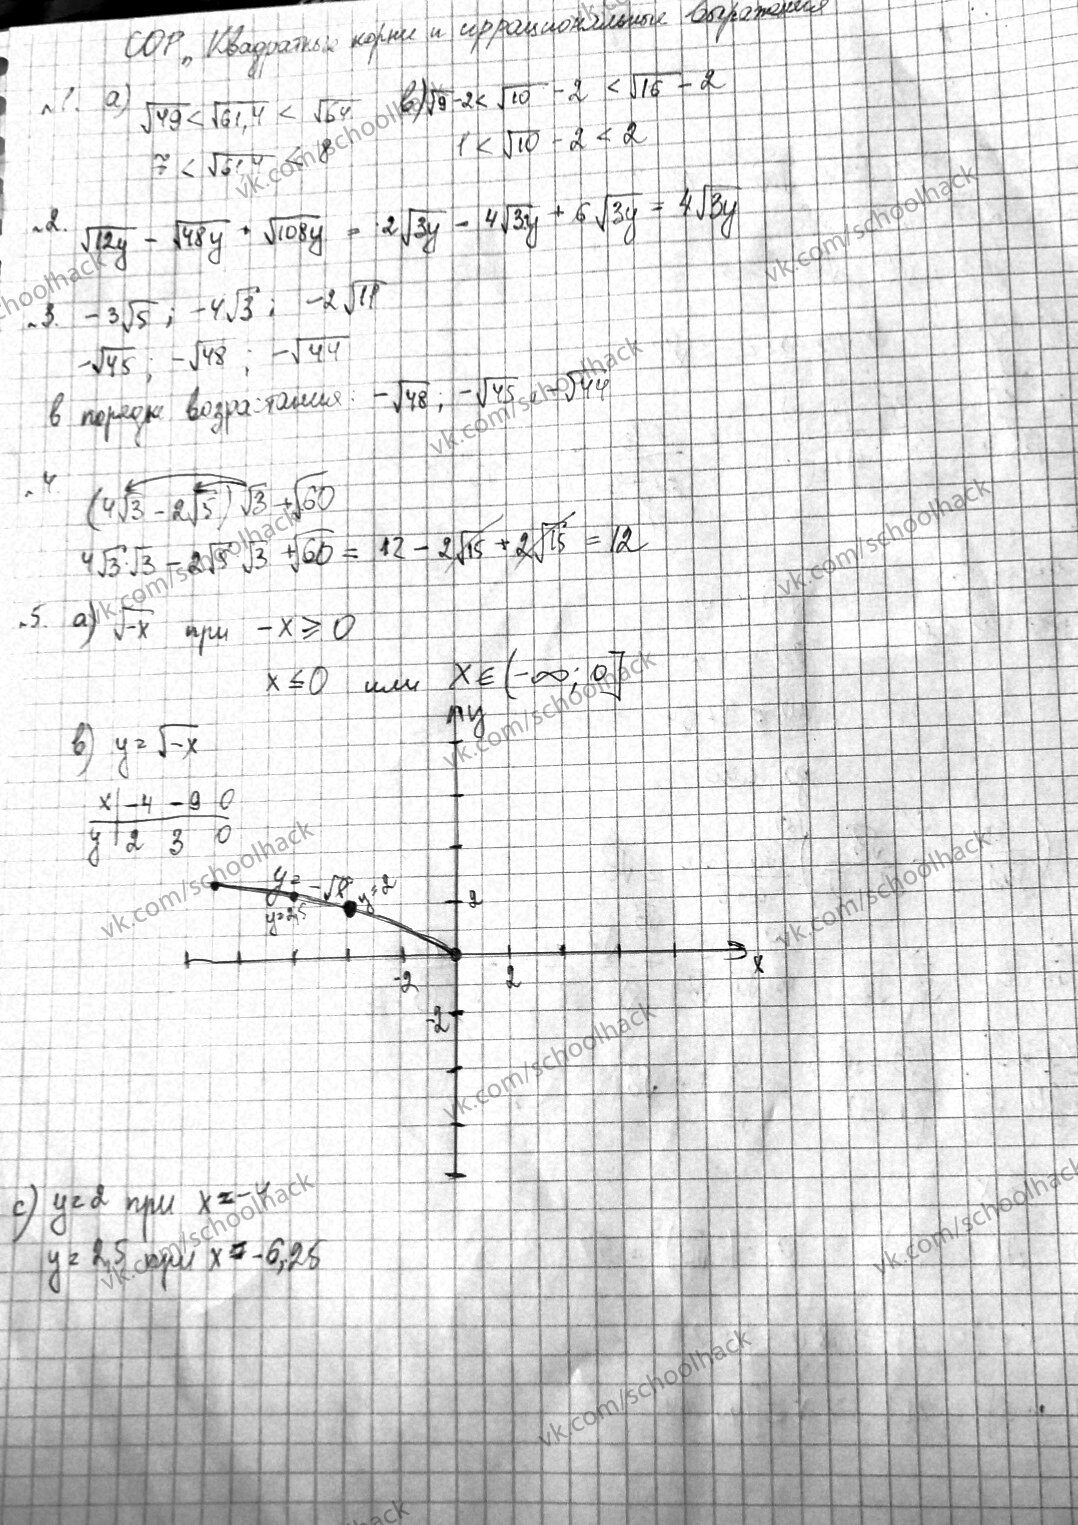 СОР „Квадратные корни и иррациональные выражения
№1. а) √49 < √61,4 < √64
7 < √61,4 < 8
в) √9 - 2 < √10 - 2 < √16 - 2
1 < √10 - 2 < 2
№2. √12y - √48y + √108y = 2√3y - 4√3y + 6√3y = 4√3y
№3. -3√5 ; -4√3 ; -2√11
-√45 ; -√48 ; -√44
в порядке возрастания: -√48 ; -√45 ; -√44
№4. (4√3 - 2√5) √3 + √60
4√3·√3 - 2√5·√3 + √60 = 12 - 2√15 + 2√15 = 12
№5. а) √-x при -x ⩾ 0
x ≤ 0 или x ∈ (-∞; 0]
в) y = √-x
x -4 -9 0
y 2 3 0
y
y = -√x
y=2
y=2,5
2
-2
2
x
-2
с) y=2 при x = -4
y = 2,5 при x = -6,25
vk.com/schoolhack
vk.com/schoolhack
vk.com/schoolhack
vk.com/schoolhack
vk.com/schoolhack
vk.com/schoolhack
vk.com/schoolhack
vk.com/schoolhack
vk.com/schoolhack
vk.com/schoolhack
vk.com/schoolhack
vk.com/schoolhack
vk.com/schoolhack